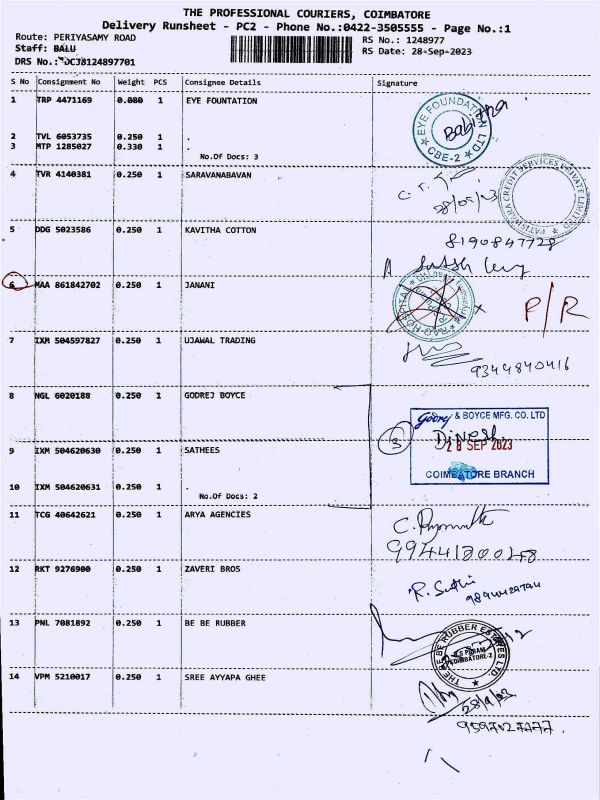 THE PROFESSIONAL COURIERS, COIMBATORE
Delivery Runsheet - PC2 - Phone No.:0422-3505555 - Page No.:1
Route: PERIYASAMY ROAD
RS No.: 1248977
Staff: BALU
RS Date: 28-Sep-2023
DRS No.:
S No Consignment No Weight PCS Consignee Details Signature
1 TRP 4471169 0.080 1 EYE FOUNTATION
EYE FOUNDATION LTD
CBE-2
Babitha
2 TVL 6053735 0.250 1 .
3 MTP 1285027 0.330 1 .
No.Of Docs: 3
4 TVR 4140381 0.250 1 SARAVANABAVAN
CREDIT SERVICES PRIVATE LIMITED
5 DDG 5023586 0.250 1 KAVITHA COTTON
8190847728
6 MAA 861842702 0.250 1 JANANI
HOSPITAL
P/R
7 IXM 504597827 0.250 1 UJAWAL TRADING
9344840416
8 NGL 6020188 0.250 1 GODREJ BOYCE
Godrej & BOYCE MFG. CO. LTD
3
Dinesh
28 SEP 2023
COIMBATORE BRANCH
9 IXM 504620630 0.250 1 SATHEES
10 IXM 504620631 0.250 1 .
No.Of Docs: 2
11 TCG 40642621 0.250 1 ARYA AGENCIES
12 RKT 9276900 0.250 1 ZAVERI BROS
13 PNL 7081892 0.250 1 BE BE RUBBER
THE BE BE RUBBER ESTATES LTD.
COIMBATORE-2
14 VPM 5210017 0.250 1 SREE AYYAPA GHEE
28/9/23